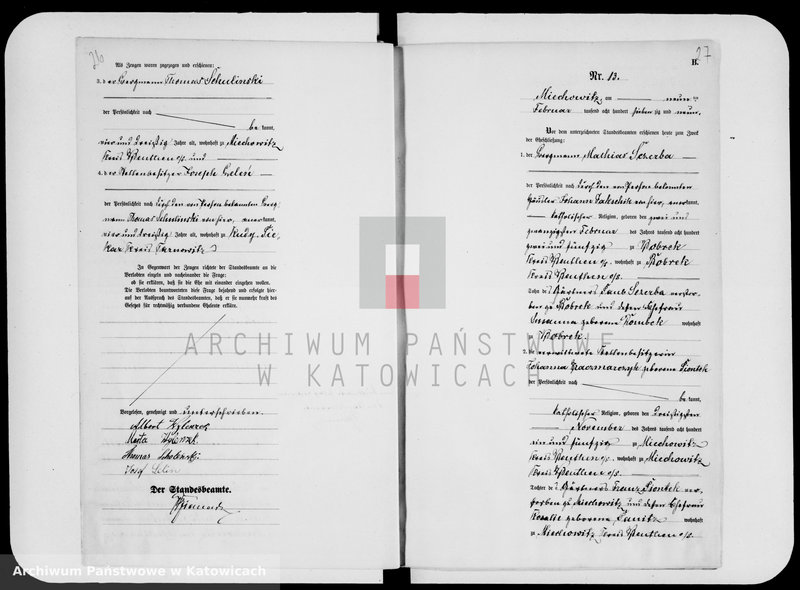 26
Als Zeugen waren zugezogen und erschienen:
3. der Bergmann Thomas Schulinski
der Persönlichkeit nach
be kannt,
vier und dreißig Jahre alt, wohnhaft zu Miechowitz
Kreis Beuthen o/s. und
4. der Stellenbesitzer Joseph
der Persönlichkeit nach durch den von Person bekannten Berg-
mann Thomas Schulinski von hier, aner kannt,
vier und dreißig Jahre alt, wohnhaft zu Rudy-Pie-
kar Kreis Tarnowitz
In Gegenwart der Zeugen richtete der Standesbeamte an die
Verlobten einzeln und nacheinander die Frage:
ob sie erklären, daß sie die Ehe mit einander eingehen wollen.
Die Verlobten beantworteten diese Frage bejahend und erfolgte hier-
auf der Ausspruch des Standesbeamten, daß er sie nunmehr kraft des
Gesetzes für rechtmäßig verbundene Eheleute erkläre.
Vorgelesen, genehmigt und unterschrieben.
Albert
Marta
Thomas
Josef
Der Standesbeamte.
27
B.
Nr. 13.
Miechowitz, am neun ten
Februar tausend acht hundert sieben zig und neun.
Vor dem unterzeichneten Standesbeamten erschienen heute zum Zweck
der Eheschließung:
1. der Bergmann Mathias Sczerba
der Persönlichkeit nach durch den von Person bekannten
Häusler Johann von hier, aner kannt,
katholischer Religion, geboren den zwei und
zwanzigsten Februar des Jahres tausend acht hundert
zwei und fünfzig zu Bobrek
Kreis Beuthen o/s., wohnhaft zu Bobrek
Kreis Beuthen o/s.
Sohn des Gärtners Paul Sczerba verstor-
ben zu Bobrek und dessen Ehefrau
Susanna geborene wohnhaft
zu Bobrek.
2. die verwittwete Stellenbesitzerin
Johanna Kaczmarczyk, geborene Piontek
der Persönlichkeit nach
be kannt,
katholischer Religion, geboren den dreißigsten
November des Jahres tausend acht hundert
ein und fünfzig zu Miechowitz
Kreis Beuthen o/s., wohnhaft zu Miechowitz
Kreis Beuthen o/s.
Tochter des Gärtners Franz Piontek ver-
storben zu Miechowitz und dessen Ehefrau
Rosalie geborene wohnhaft
zu Miechowitz Kreis Beuthen o/s.
ARCHIWUM PAŃSTWOWE
W KATOWICACH
Archiwum Państwowe w Katowicach